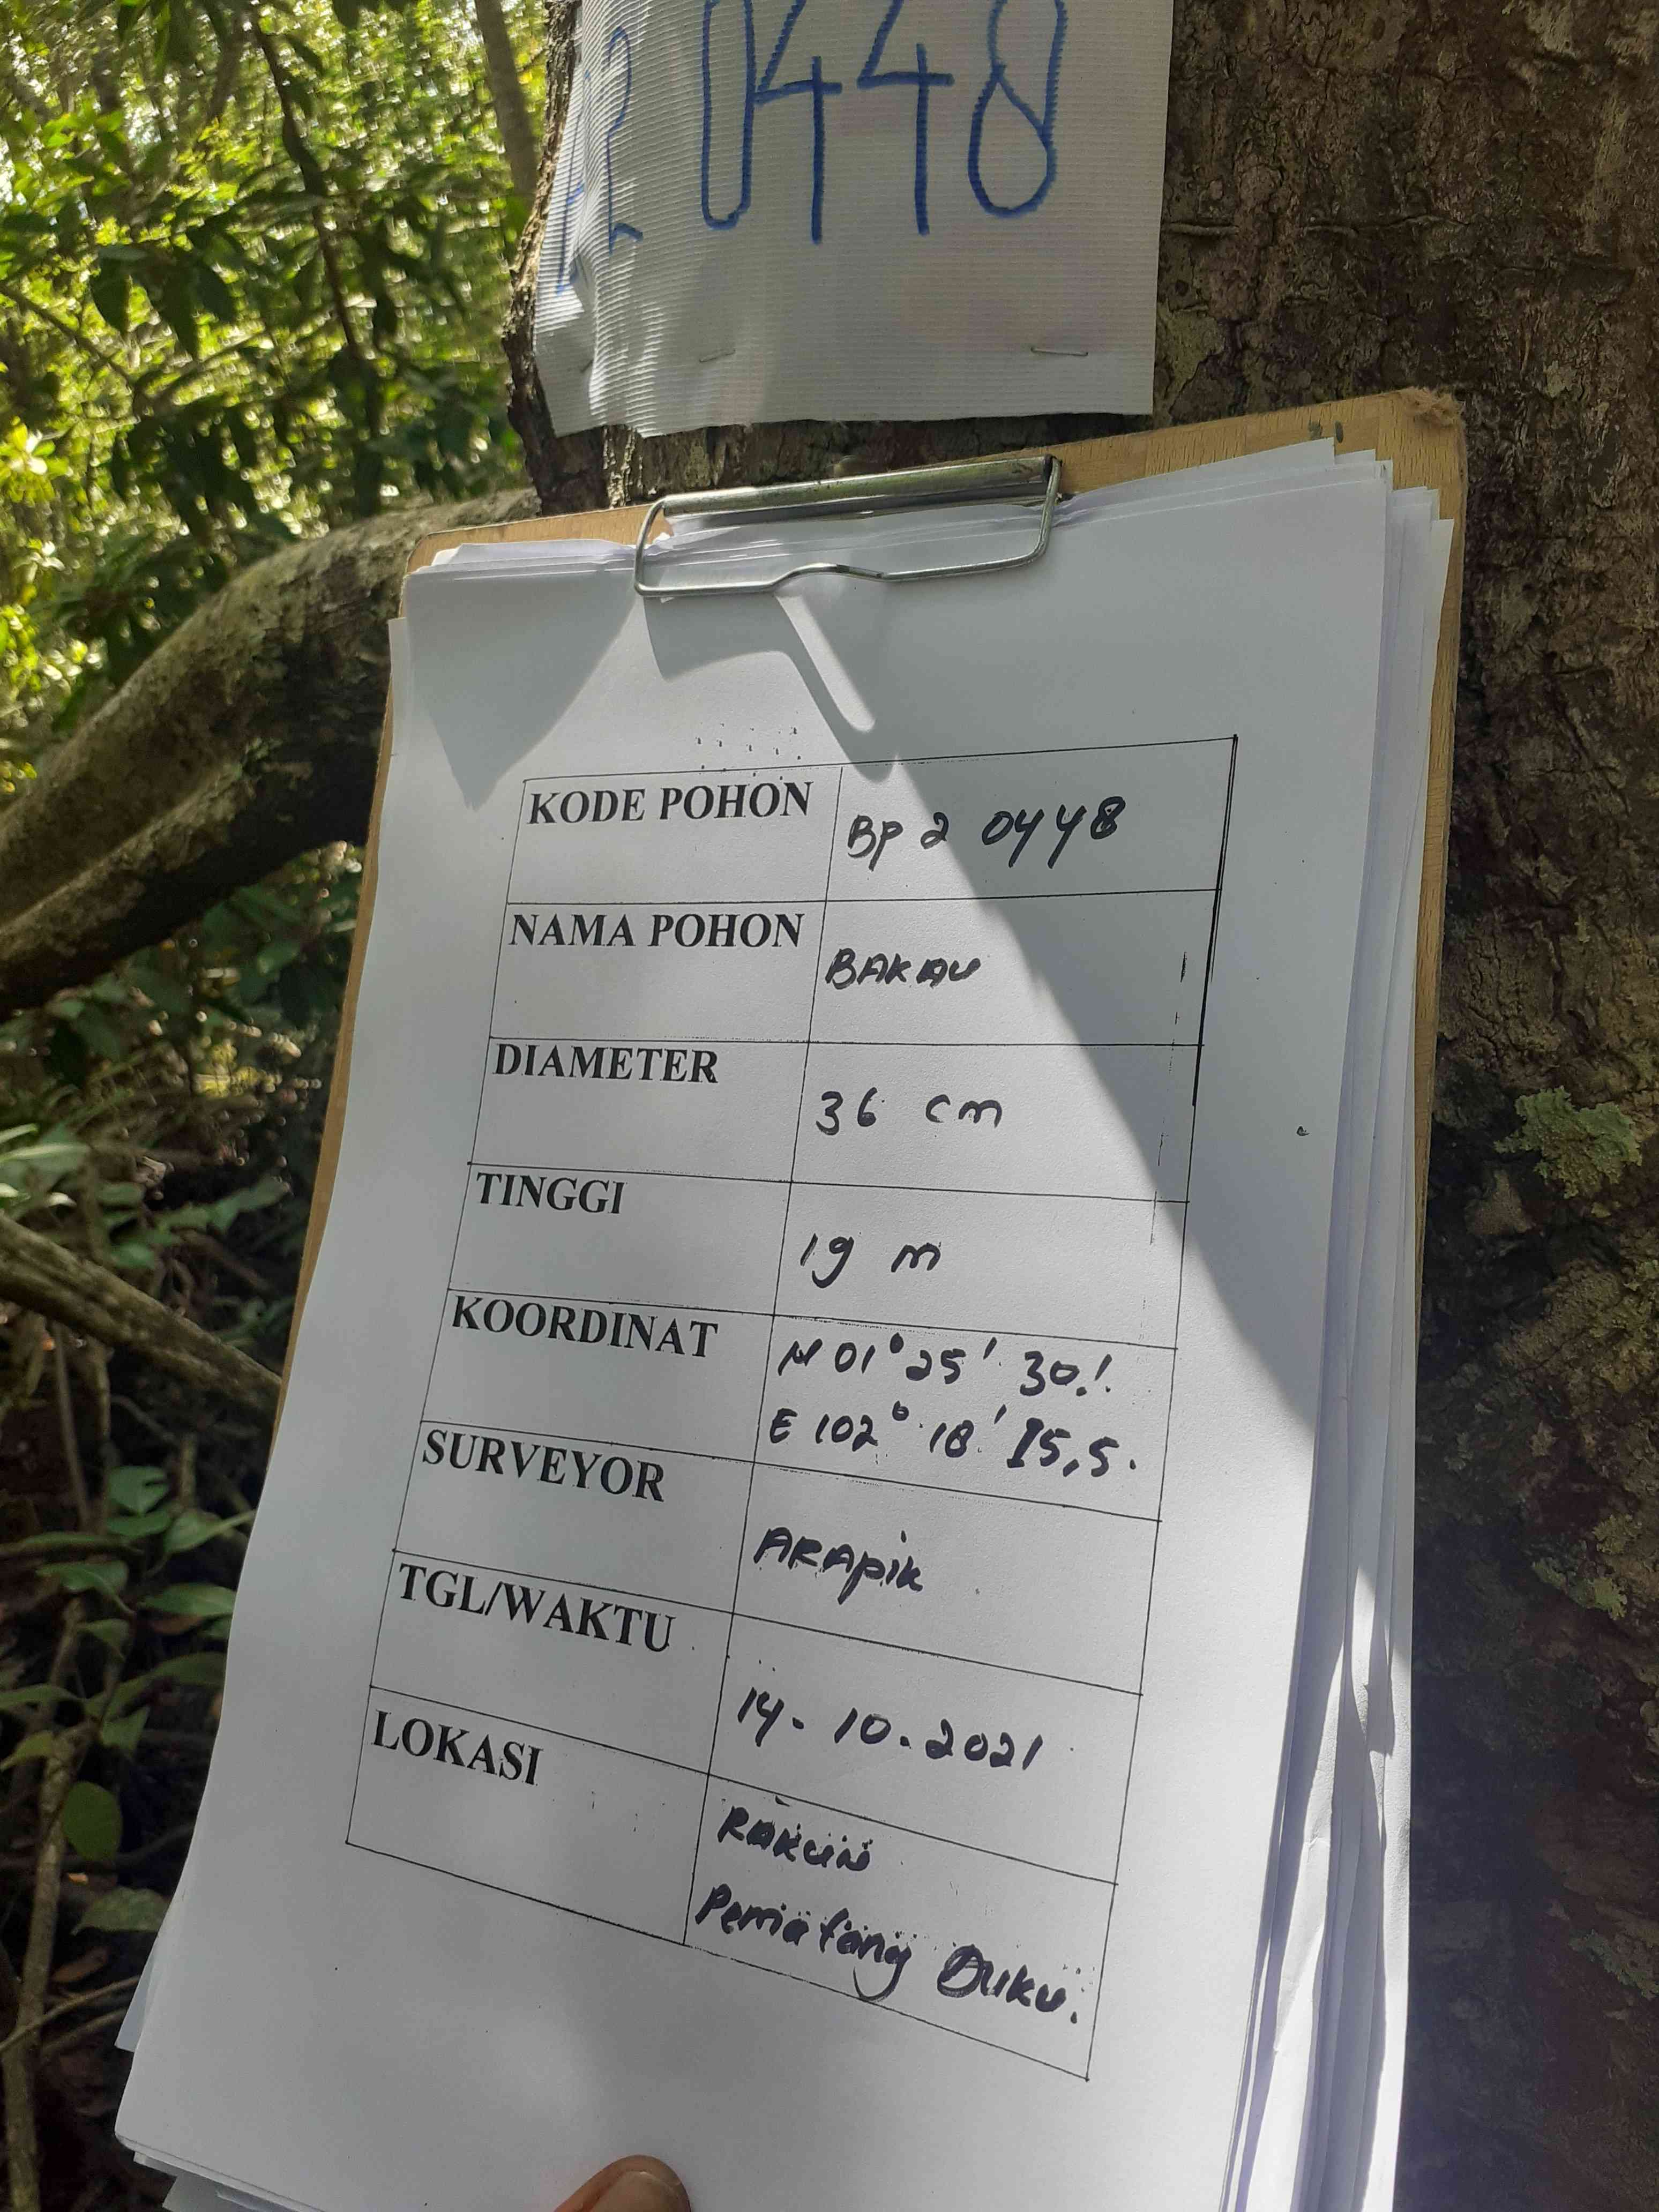 2 0448
KODE POHON
BP 2 0448
NAMA POHON
BAKAU
DIAMETER
36 cm
TINGGI
19 m
KOORDINAT
N 01° 25' 30.!
E 102° 18' 15,5.
SURVEYOR
ARApik
TGL/WAKTU
14. 10. 2021
LOKASI
Pematang Duku.